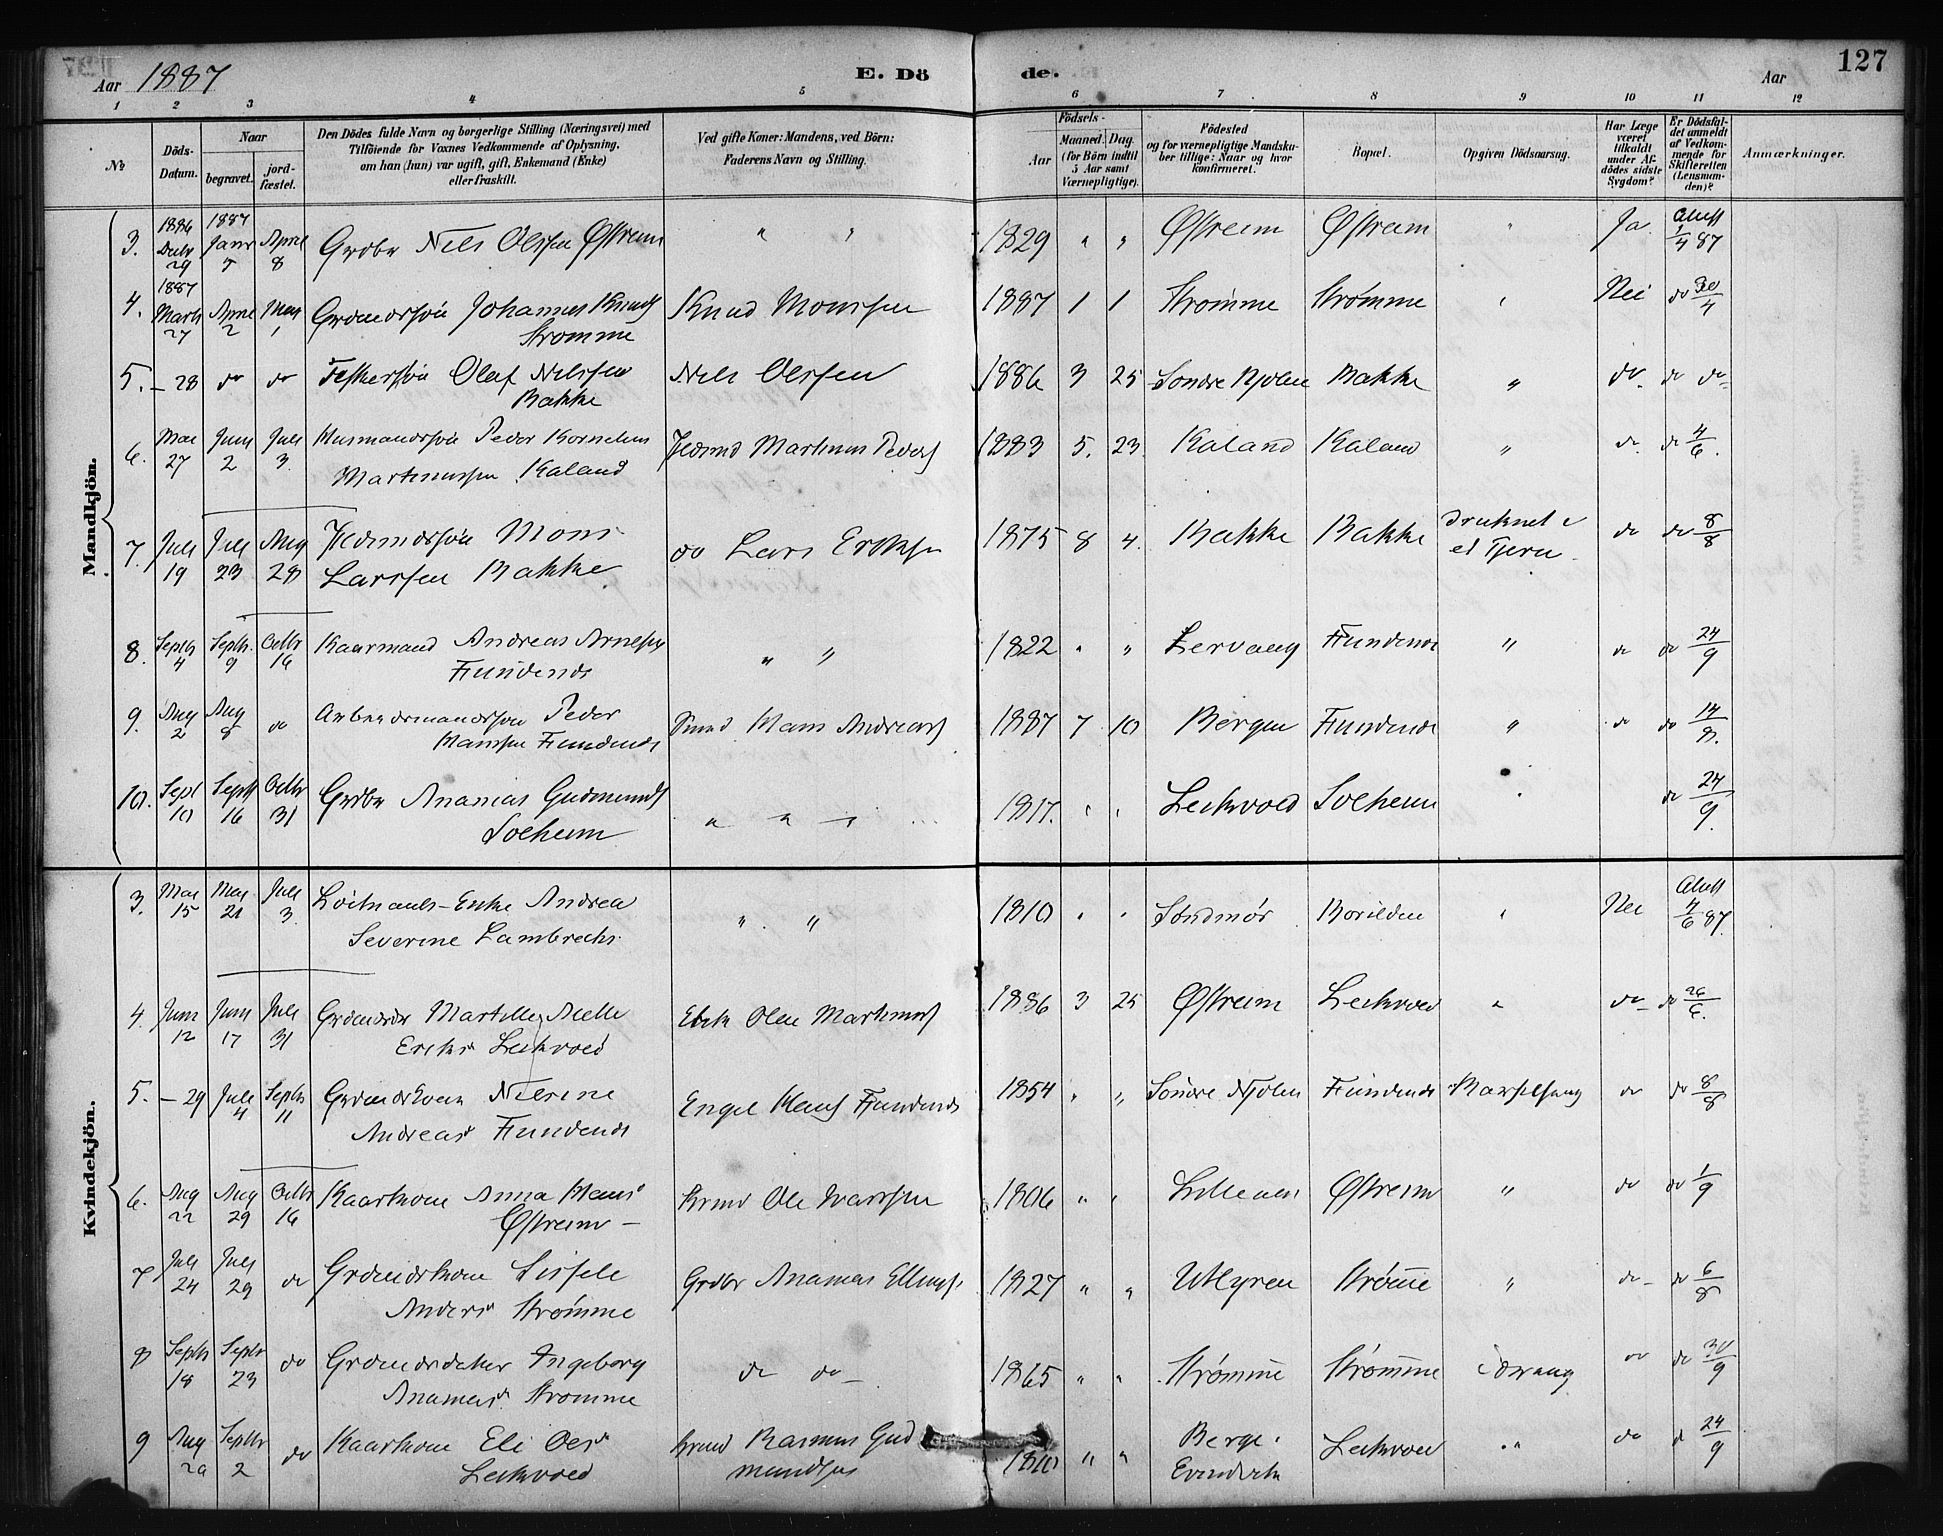 Aar 1887 E. Dö de. Aar 127
1 2 3 4 5 6 7 8 9 10 11 12
No
Döds-Datum.
Naar
begravet.
jord-fæstet.
Den Dödes fulde Navn og borgerlige Stilling (Næringsvei) med
Tilföiende for Voxnes Vedkommende af Oplysning,
om han (hun) var ugift, gift, Enkemand (Enke)
eller fraskilt.
Ved gifte Koner: Mandens, ved Börn:
Faderens Navn og Stilling.
Födsels-
Aar
Maaned. Dag.
(for Börn indtil
5 Aar samt
Værnepligtige).
Födested
og for værnepligtige Mandska-
ber tillige: Naar og hvor
konfirmeret.
Bopæl.
Opgiven Dödsaarsag.
Har Læge
været
tilkaldt
under Af-
dödes sidste
Sygdom?
Er Dödsfal-
det anmeldt
af Vedkom-
mende for
Skifteretten
(Lensman-
den)?
Anmærkninger.
Mandkjön.
3. 1886 Decbr 29 1887 Janr 5 April 8 Grdbr Nils Olssen Østreim " " 1829 " " Østreim Østreim " Ja. 1/4 87
4. 1887 Marts 27 April 2 Mai 1 Grdmdssön Johannes Knuds Strömme Knud Monssen 1887 1 1 Strömme Strömme " Nei do 30/4
5. – 28 do do Fiskersön Olaf Nilssen Bakke Nils Olssen 1886 3 25 Søndre Bakke " do. do do
6. Mai 27 Juni 2 Juli 3 Husmandssön Peder Kornelius Martinussen Kaland Martinus Peders 1883 5. 23 Kaland Kaland " do. do 4/6.
7. Juli 19 Juli 23 Aug 28 Mons Larssen Bakke do Lars Eriksen 1875 8 4. Bakke Bakke Druknet i et Tjern do do 8/8
8. Septbr 4 Septbr. 9 Octbr 16 Kaarmand Andreas Arnesen Fundends " " 1822 " " Lervaag Fundends " do do 24/9
9. Aug 2 Aug 8 do Arbeidsmandssön Peder Hanssen Fundends Hans Andreas 1887 7 10 Bergen Fundends " do do 14/8.
10. Sept 10 Septb 16 Octbr 31 Grdbr Ananias Gudmunds Solheim " " " 1817. " " Leikvold Solheim " do 24/9.
Kvindekjön.
3. Mai 15 Mai 21 Juli 3 Löitnants-Enke Andrea Severine Lambrechts " " 1810 " " Söndmör " Nei 4/6 87.
4. Juni 12 Juni 17 Juli 31 Eriks Leikvold Erik Olai Martinus 1886 3 25 Østreim Leikvold " do do 26/6.
5. – 29 Juli 4 Septbr 11 Nilsine Andreasd Fundends Engel Hans Fundends 1854 " " Søndre Fundends Barselseng do do 8/8
6. Aug 22 Aug 29 Octbr 16 Kaarkone Anna Hansd Østreim – Ole Ivarssen 1806 " " Østreim " do do 1/9
7 Juli 24 Juli 29 do Grdmdskone Sissele Andersd Strömme Grdbr Ananias Ellings. 1827 " " Strömme " do – do 6/8
8 Septb 18 Septbr 23 do Grdmdsdatter Ingeborg Ananiasd Strömme do do – 1865 " " Strömme Strömme do do 30/9
9 Aug Septbr 2 do Kaarkone Eli Olsd Leikvold Rasmus Gudmundsen 1810 " " Leikvold " do do 24/9